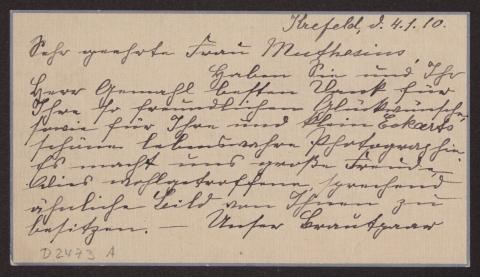 Krefeld, d. 4.1.10.
Sehr geehrte Frau Muthesius,
Haben Sie und Ihr
Herr Gemahl besten Dank für
Ihre so freundlichen Glückwünsche,
sowie für Ihre und klein Eckarts
schöne lebenswahre Photographie.
Es macht uns große Freude,
dies wohlgetroffene, sprechend
ähnliche Bild von Ihnen zu
besitzen. — Unser Brautpaar
D2473 A